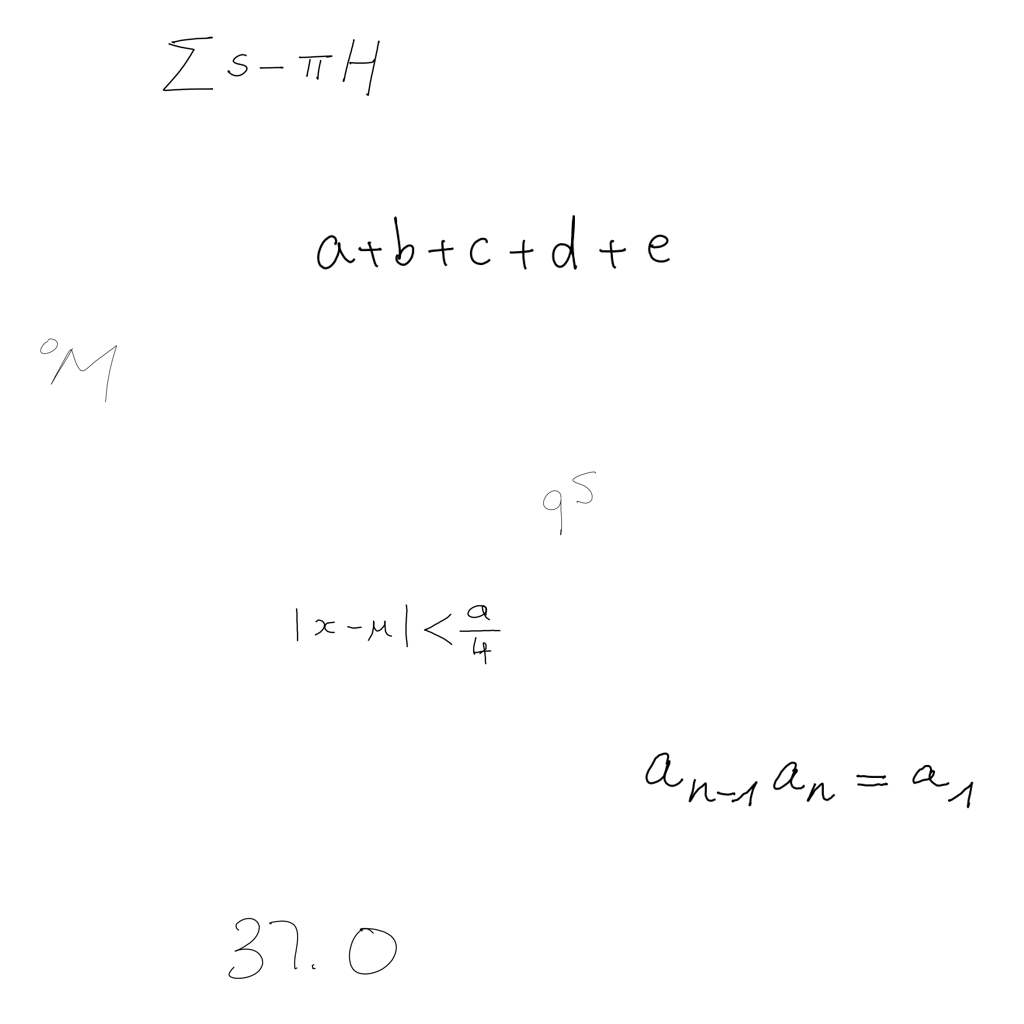 ∑ s - π H
a + b + c + d + e
°M
q^s
|x - μ| < a/4
a_{n-1} a_n = a_1
37.0